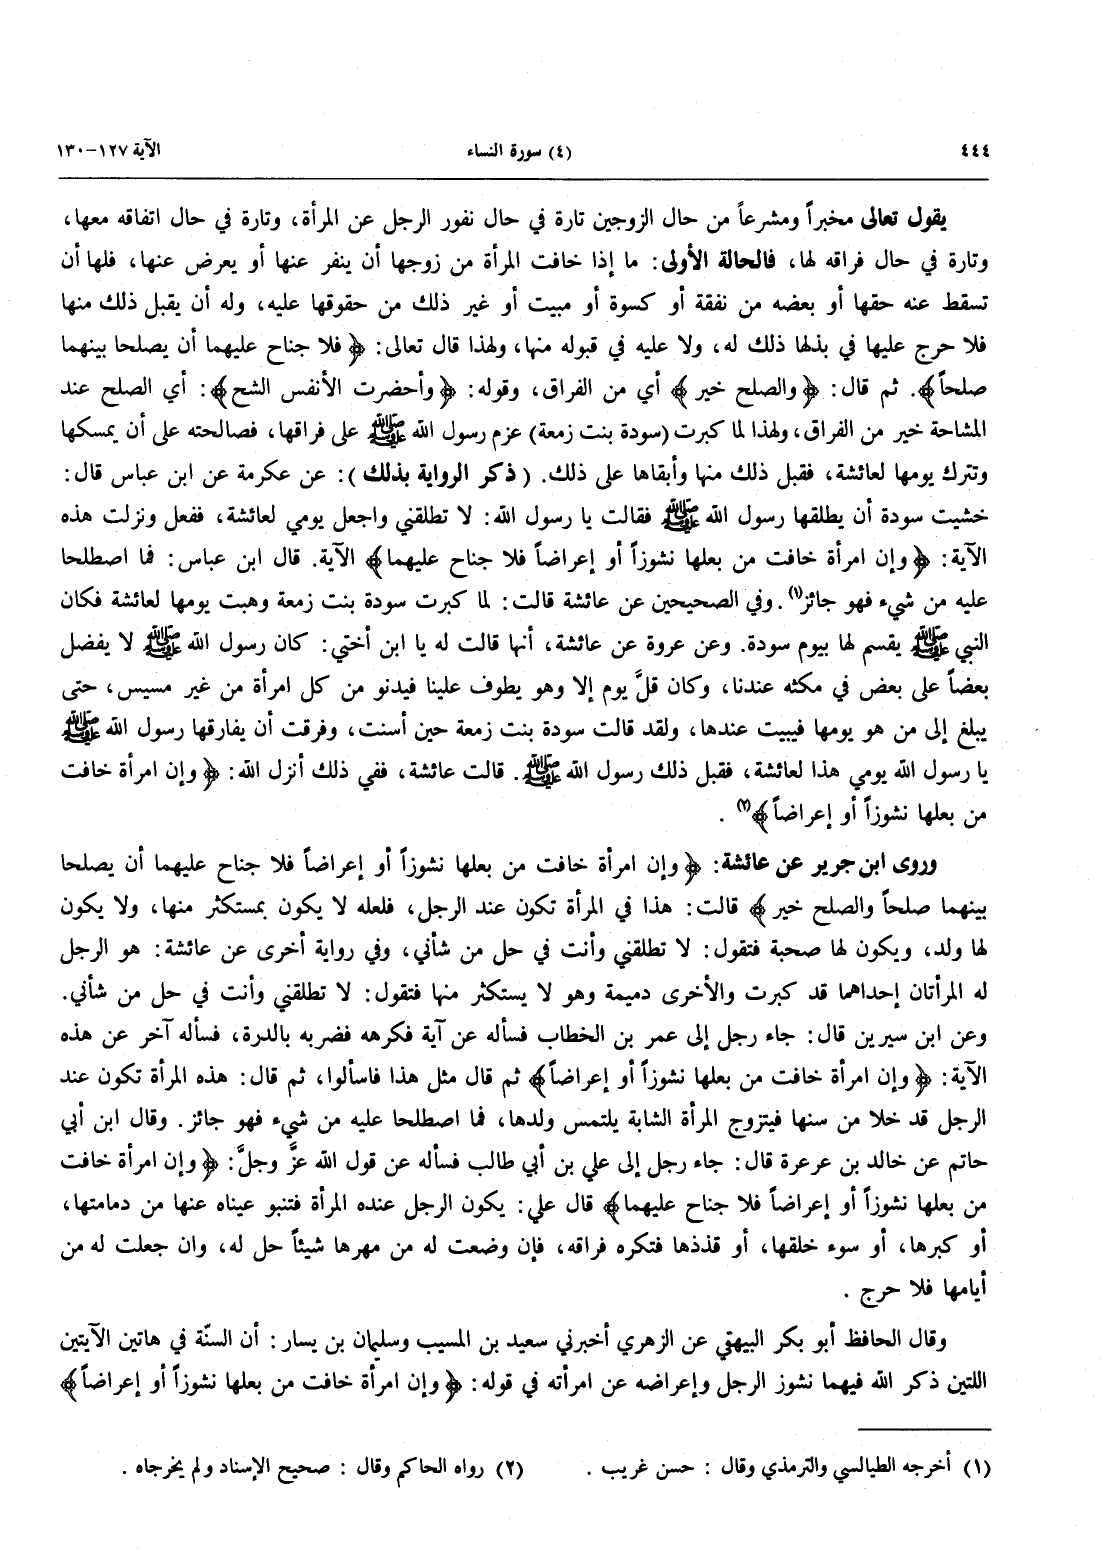 ٤٤٤ (٤) سورة النساء الآية ١٢٧-١٣٠
يقول تعالى مخبراً ومشرعاً من حال الزوجين تارة في حال نفور الرجل عن المرأة، وتارة في حال اتفاقه معها،
وتارة في حال فراقه لها، فالحالة الأولى: ما إذا خافت المرأة من زوجها أن ينفر عنها أو يعرض عنها، فلها أن
تسقط عنه حقها أو بعضه من نفقة أو كسوة أو مبيت أو غير ذلك من حقوقها عليه، وله أن يقبل ذلك منها
فلا حرج عليها في بذلها ذلك له، ولا عليه في قبوله منها، ولهذا قال تعالى: ﴿فلا جناح عليهما أن يصلحا بينهما
صلحاً﴾. ثم قال: ﴿والصلح خير﴾ أي من الفراق، وقوله: ﴿وأحضرت الأنفس الشح﴾: أي الصلح عند
المشاحة خير من الفراق، ولهذا لما كبرت (سودة بنت زمعة) عزم رسول الله ﷺ على فراقها، فصالحته على أن يمسكها
وتترك يومها لعائشة، فقبل ذلك منها وأبقاها على ذلك. (ذكر الرواية بذلك): عن عكرمة عن ابن عباس قال:
خشيت سودة أن يطلقها رسول الله ﷺ فقالت يا رسول الله: لا تطلقني واجعل يومي لعائشة، ففعل ونزلت هذه
الآية: ﴿وإن امرأة خافت من بعلها نشوزاً أو إعراضاً فلا جناح عليهما﴾ الآية. قال ابن عباس: فما اصطلحا
عليه من شيء فهو جائز(١). وفي الصحيحين عن عائشة قالت: لما كبرت سودة بنت زمعة وهبت يومها لعائشة فكان
النبي ﷺ يقسم لها بيوم سودة. وعن عروة عن عائشة، أنها قالت له يا ابن أختي: كان رسول الله ﷺ لا يفضل
بعضاً على بعض في مكثه عندنا، وكان قلَّ يوم إلا وهو يطوف علينا فيدنو من كل امرأة من غير مسيس، حتى
يبلغ إلى من هو يومها فيبيت عندها، ولقد قالت سودة بنت زمعة حين أسنت، وفرقت أن يفارقها رسول الله ﷺ
يا رسول الله يومي هذا لعائشة، فقبل ذلك رسول الله ﷺ. قالت عائشة، ففي ذلك أنزل الله: ﴿وإن امرأة خافت
من بعلها نشوزاً أو إعراضاً﴾(٢) .
وروى ابن جرير عن عائشة: ﴿وإن امرأة خافت من بعلها نشوزاً أو إعراضاً فلا جناح عليهما أن يصلحا
بينهما صلحاً والصلح خير﴾ قالت: هذا في المرأة تكون عند الرجل، فلعله لا يكون بمستكثر منها، ولا يكون
لها ولد، ويكون لها صحبة فتقول: لا تطلقني وأنت في حل من شأني، وفي رواية أخرى عن عائشة: هو الرجل
له المرأتان إحداهما قد كبرت والأخرى دميمة وهو لا يستكثر منها فتقول: لا تطلقني وأنت في حل من شأني.
وعن ابن سيرين قال: جاء رجل إلى عمر بن الخطاب فسأله عن آية فكرهه فضربه بالدرة، فسأله آخر عن هذه
الآية: ﴿وإن امرأة خافت من بعلها نشوزاً أو إعراضاً﴾ ثم قال مثل هذا فاسألوا، ثم قال: هذه المرأة تكون عند
الرجل قد خلا من سنها فيتزوج المرأة الشابة يلتمس ولدها، فما اصطلحا عليه من شيء فهو جائز. وقال ابن أبي
حاتم عن خالد بن عرعرة قال: جاء رجل إلى علي بن أبي طالب فسأله عن قول الله عزَّ وجلَّ: ﴿وإن امرأة خافت
من بعلها نشوزاً أو إعراضاً فلا جناح عليهما﴾ قال علي: يكون الرجل عنده المرأة فتنبو عيناه عنها من دمامتها،
أو كبرها، أو سوء خلقها، أو قذذها فتكره فراقه، فإن وضعت له من مهرها شيئاً حل له، وان جعلت له من
أيامها فلا حرج .
وقال الحافظ أبو بكر البيهقي عن الزهري أخبرني سعيد بن المسيب وسليمان بن يسار: أن السنّة في هاتين الآيتين
اللتين ذكر الله فيهما نشوز الرجل وإعراضه عن امرأته في قوله: ﴿وإن امرأة خافت من بعلها نشوزاً أو إعراضاً﴾
(١) أخرجه الطيالسي والترمذي وقال : حسن غريب . (٢) رواه الحاكم وقال : صحيح الإسناد ولم يخرجاه .